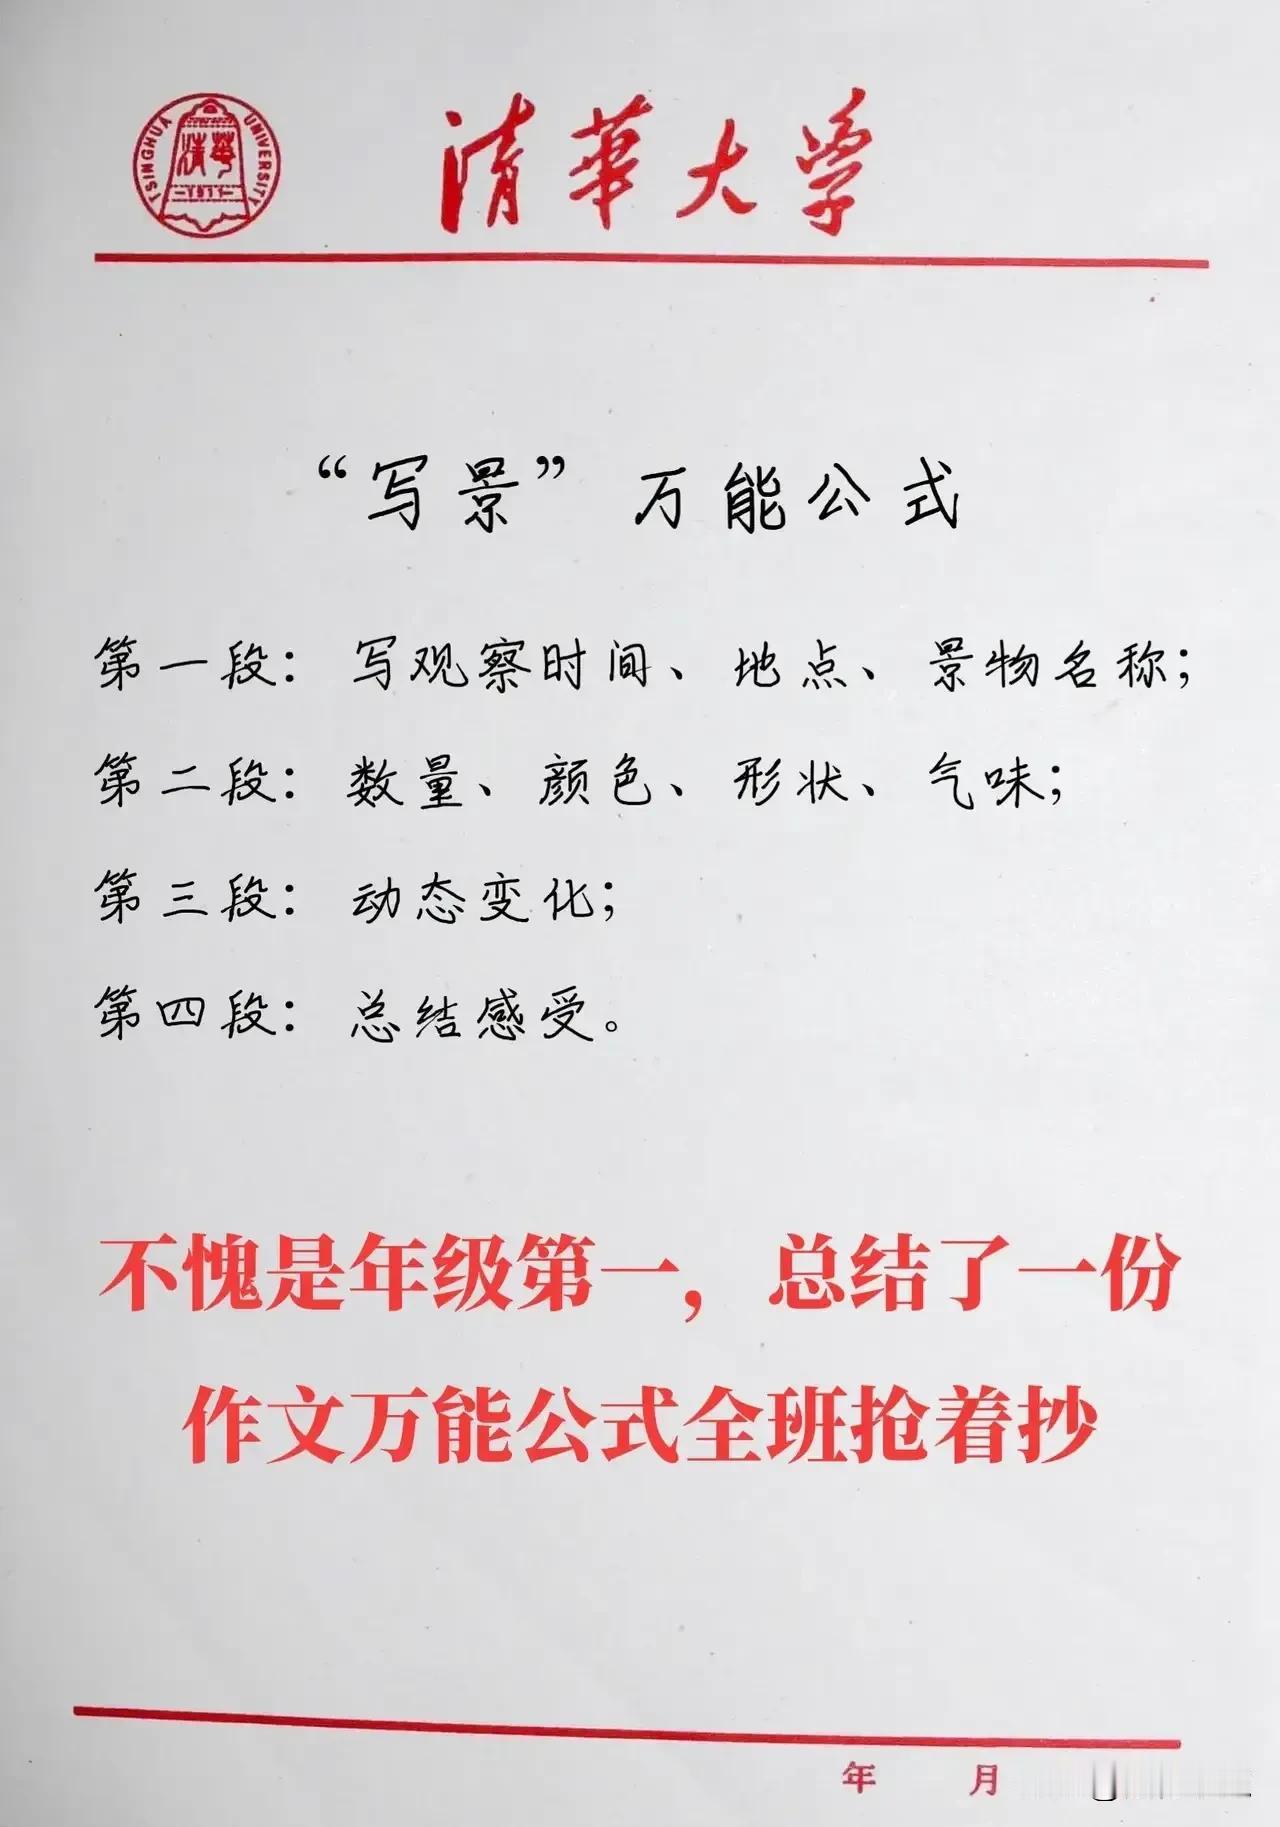 TSINGHUA UNIVERSITY
清華
1911
清華大学
“写景”万能公式
第一段：写观察时间、地点、景物名称；
第二段：数量、颜色、形状、气味；
第三段：动态变化；
第四段：总结感受。
不愧是年级第一，总结了一份
作文万能公式全班抢着抄
年 月